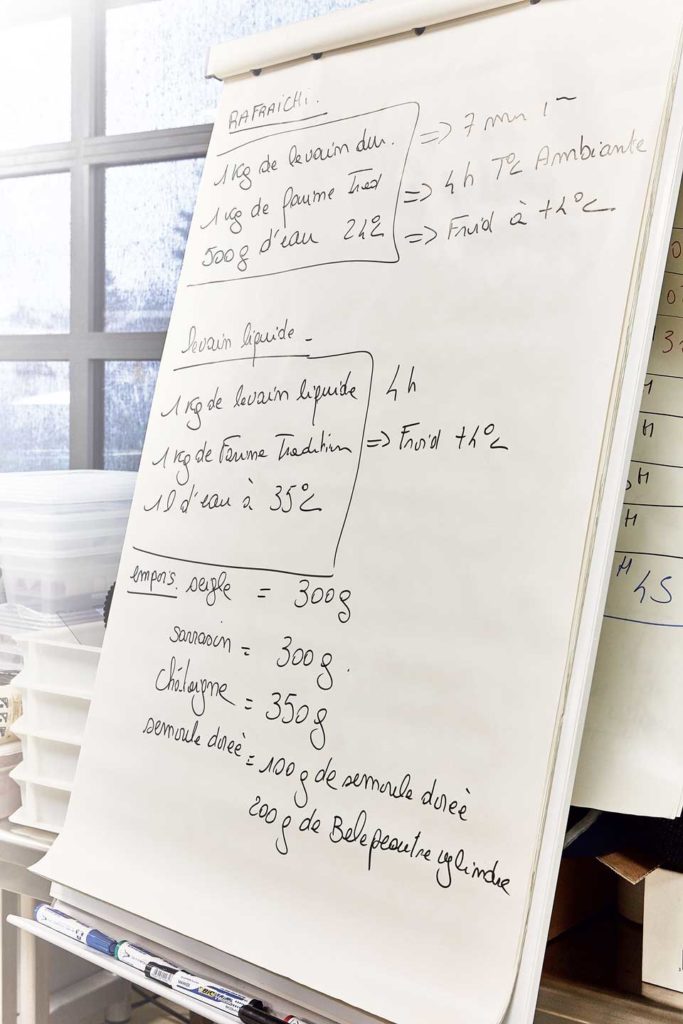 RAFRAICHI.
1 Kg de levain dur. => 7 mn 1~
1 kg de farine Trad => 4h T°C Ambiante
500g d'eau 24°C => Froid à +4°C.
levain liquide -
1 Kg de levain liquide 4h
1 kg de Farine Tradition => Froid +4°C
1l d'eau à 35°C
empois. seigle = 300g
sarrasin = 300g.
châtaigne = 350g
semoule doreé = 100g de semoule doreé
200g de Belepeautre cylindre
H
H
H
H
H 45